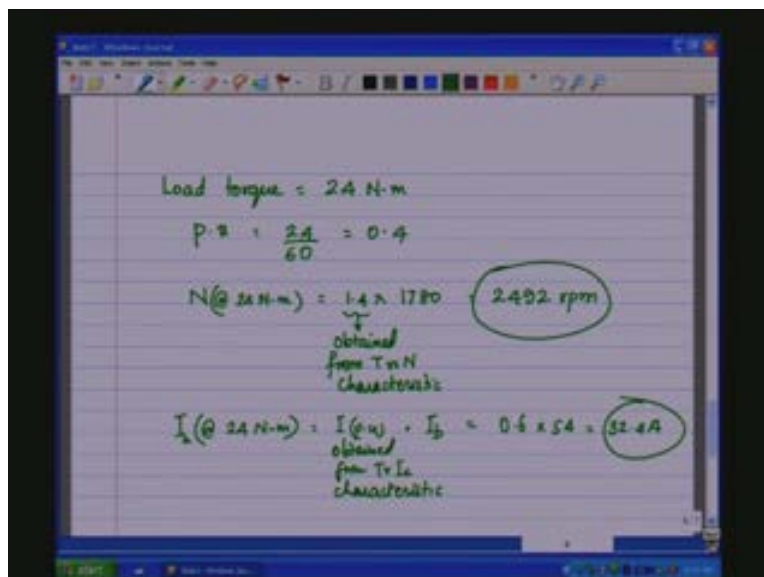 Load torque = 24 N-m
p.u = 24/60 = 0.4
N(@ 24 N-m) = 1.4 x 1780 = 2492 rpm
obtained
from T vs N
characteristic
Ia(@ 24 N-m) = I(p.u) . Ib = 0.6 x 54 = 32.4A
obtained
from T vs Ia
characteristic
start